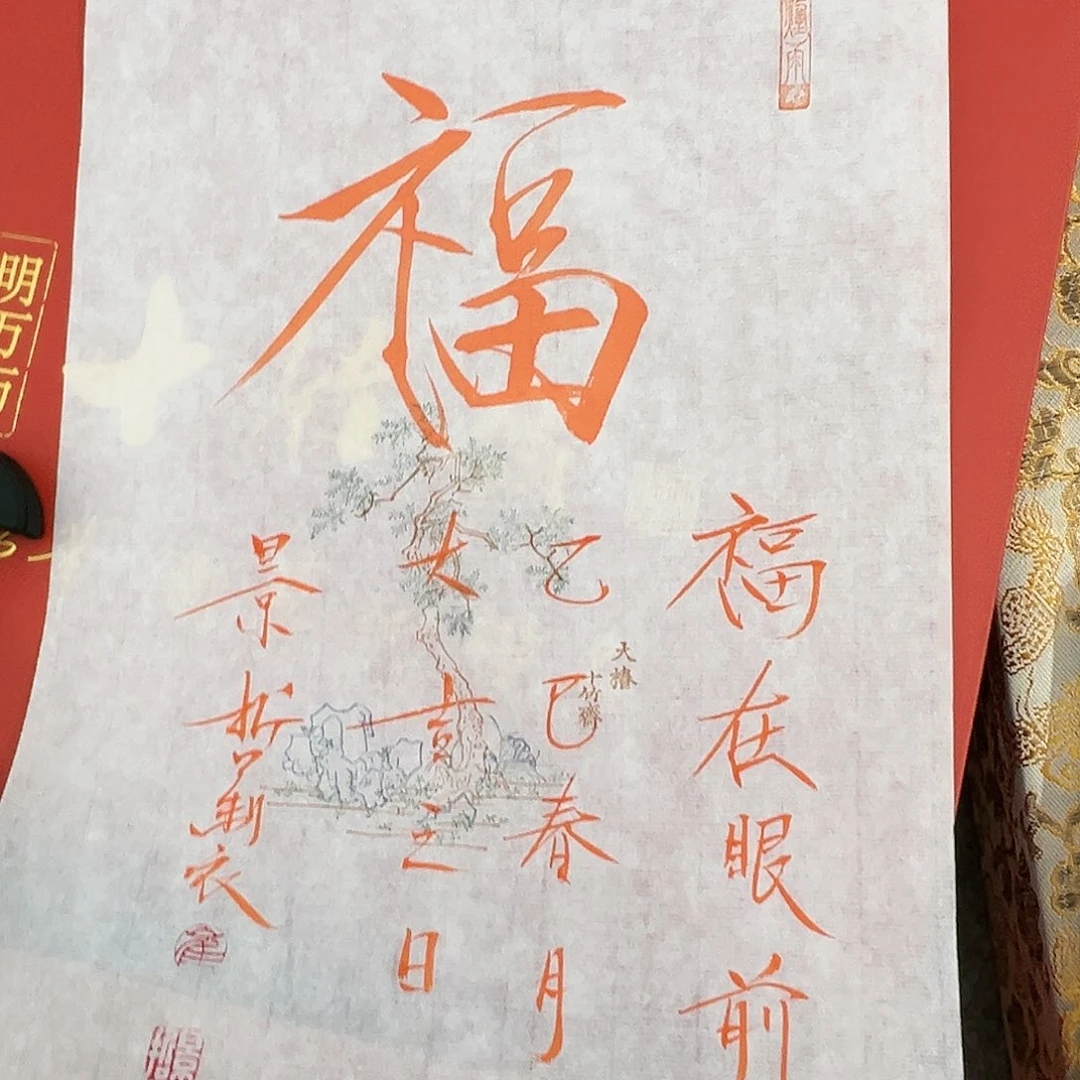 福
福在眼前
乙巳春月
大吉之日
景哲制衣
天椿
十竹齋
明万历